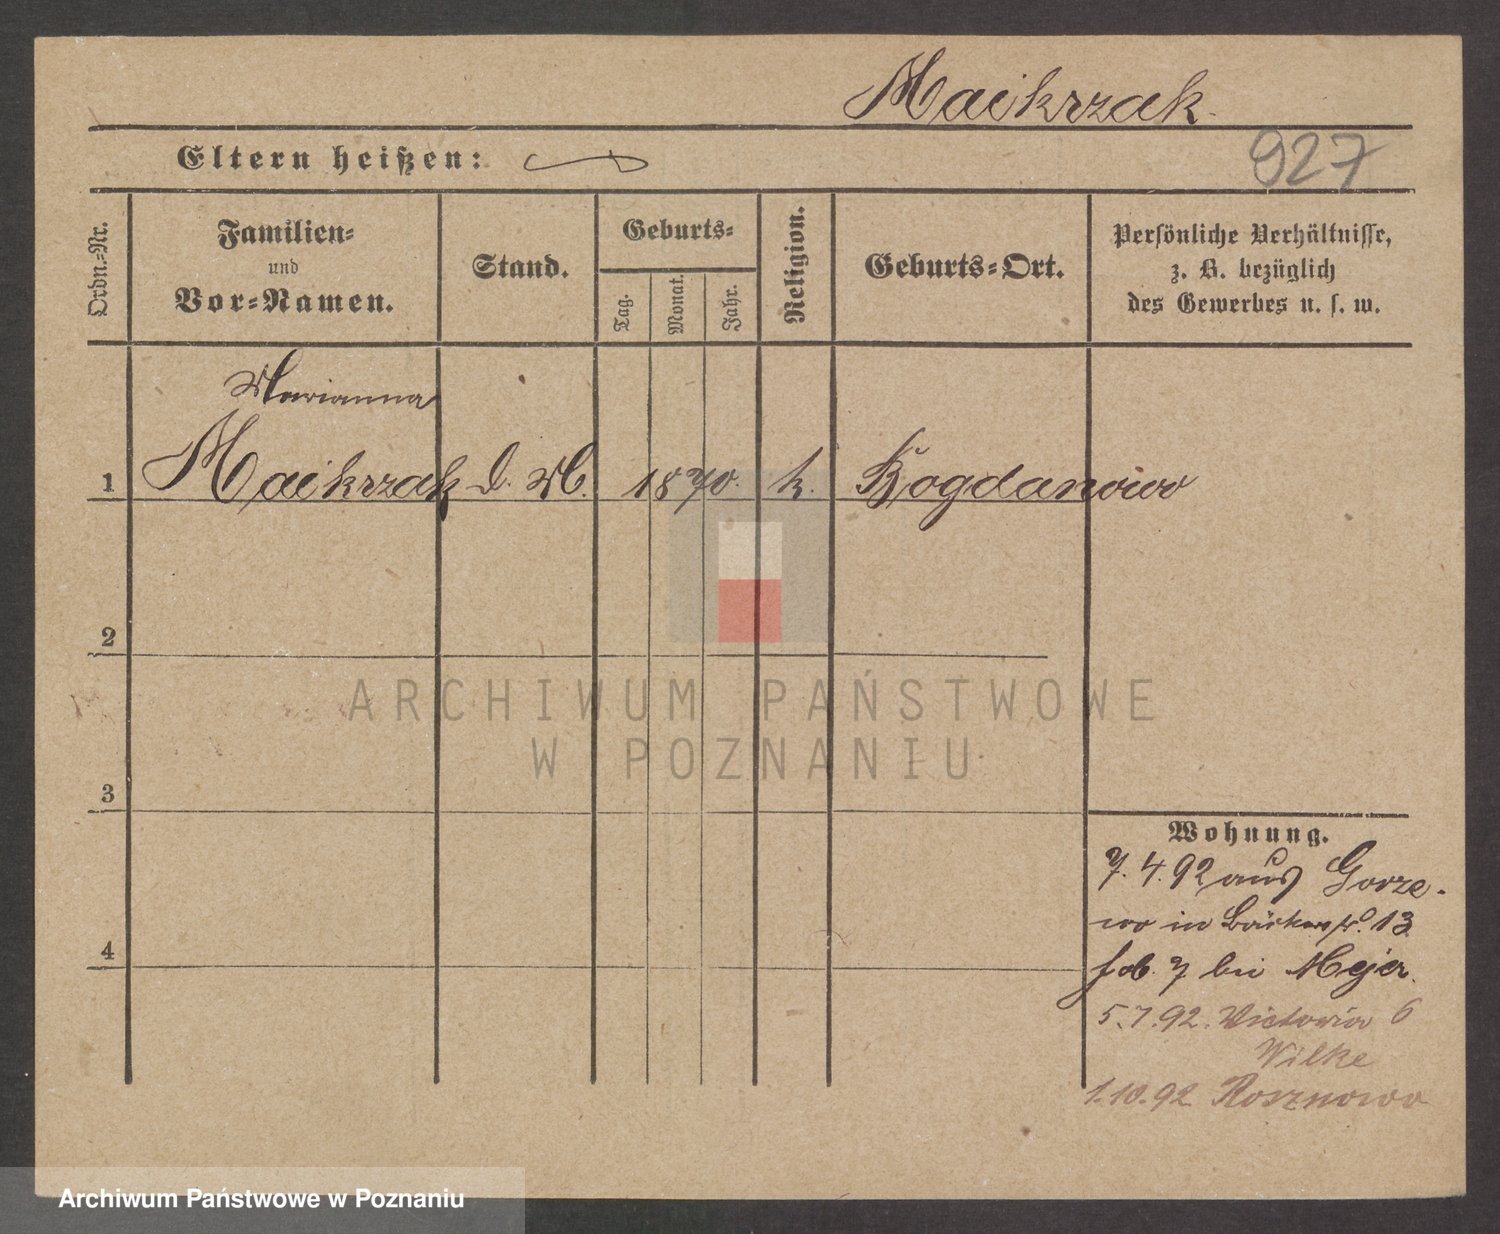 Maikrzak.
927
Eltern heißen:
Ordn.-Nr.
Familien-
und
Vor-Namen.
Stand.
Geburts-
Tag.
Monat.
Jahr.
Religion.
Geburts-Ort.
Persönliche Verhältnisse,
z. B. bezüglich
des Gewerbes u. s. w.
Marianna
1 Maikrzak D. M. 1870. k. Bogdanowo
2
3
4
Wohnung.
7. 4. 92 aus Gorze-
wo in Bäckerstr. 13
bei Mejer.
5.7.92. Victoria 6
Wilke
1.10.92 Rosznowo
ARCHIWUM PAŃSTWOWE
W POZNANIU
Archiwum Państwowe w Poznaniu